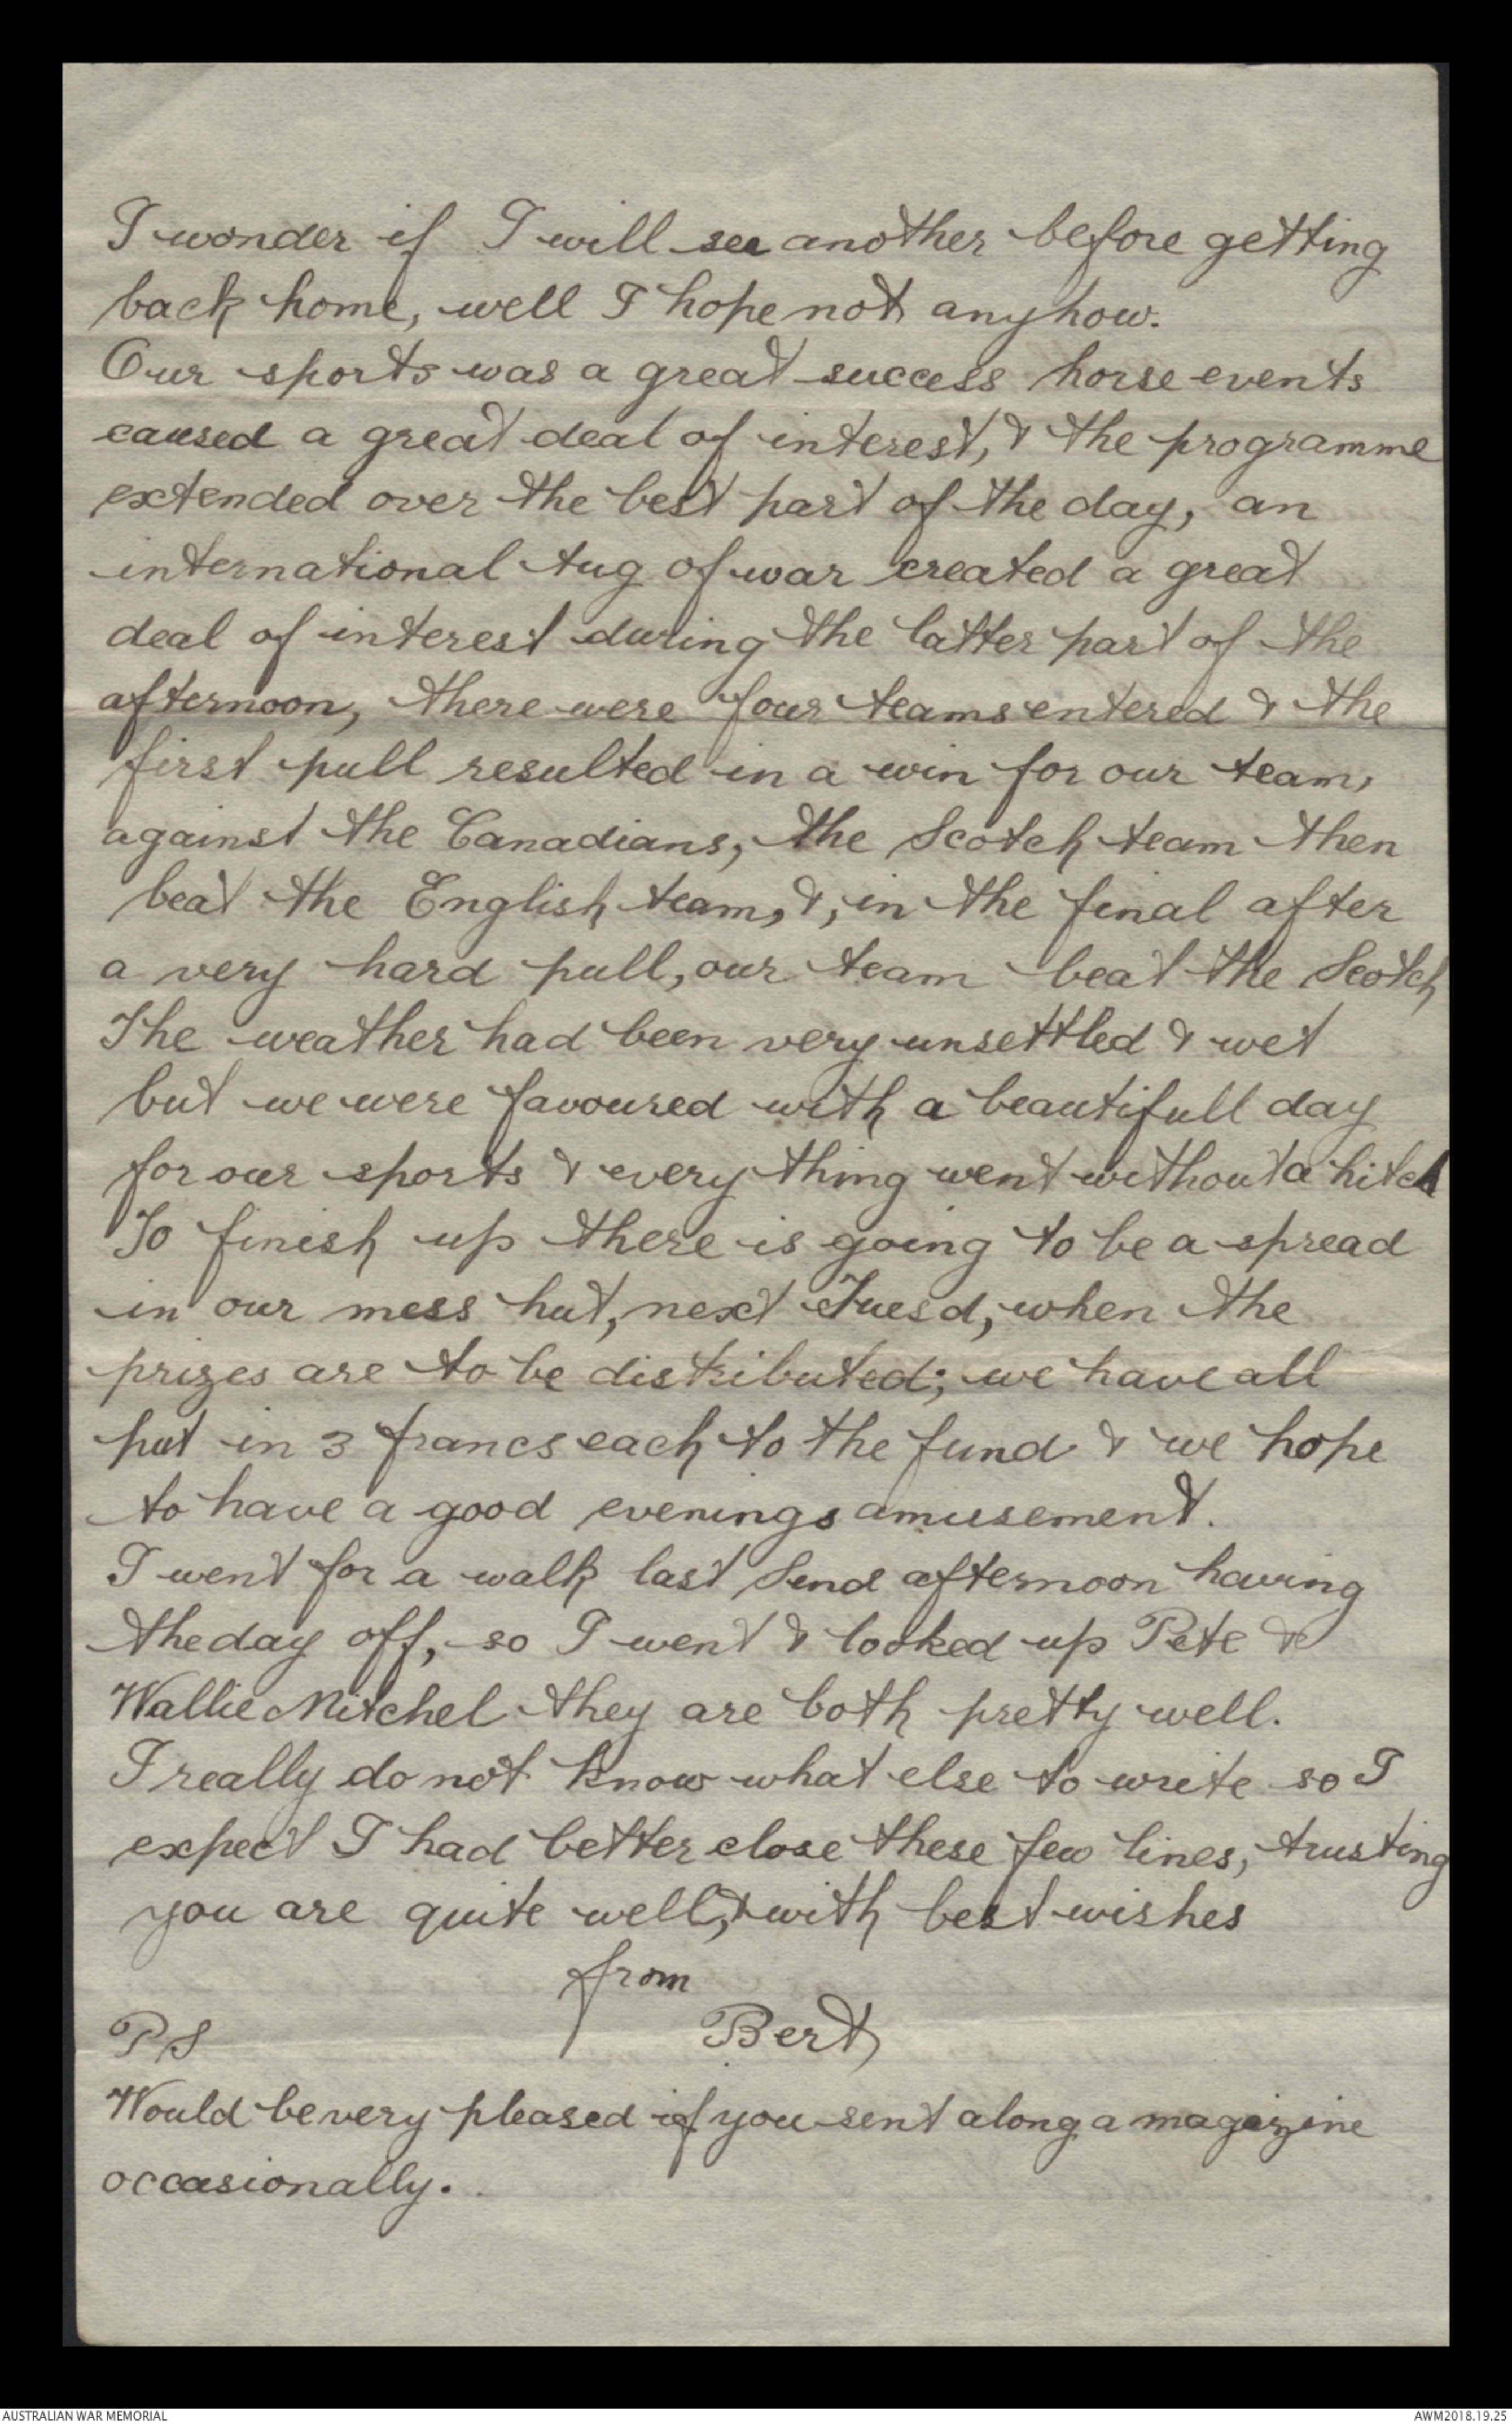 I wonder if I will see another before getting
back home, well I hope not anyhow.
Our sports was a great success horse events
caused a great deal of interest, & the programme
extended over the best part of the day, an
international tug of war created a great
deal of interest during the latter part of the
afternoon, there were four teams entered & the
first pull resulted in a win for our team,
against the Canadians, the Scotch team then
beat the English team, &, in the final after
a very hard pull, our team beat the Scotch
The weather had been very unsettled & wet
but we were favoured with a beautifull day
for our sports & every thing went without a hitch
To finish up there is going to be a spread
in our mess hut, next Tuesd, when the
prizes are to be distributed; we have all
put in 3 francs each to the fund & we hope
to have a good evenings amusement.
I went for a walk last Sund afternoon having
the day off, so I went & looked up Pete &
Wallie Mitchel they are both pretty well.
I really do not know what else to write so I
expect I had better close these few lines, trusting
you are quite well, & with best wishes
from
Bert
PS
Would be very pleased if you sent along a magazine
occasionally.
AUSTRALIAN WAR MEMORIAL
AWM2018.19.25